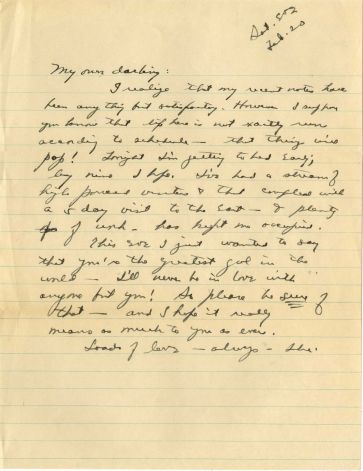 Feb. 20
My own darling:
I realize that my recent notes have
been anything but satisfactory. However I suppose
you know that life here is not exactly run
according to schedule — that things
pop! Tonight I'm getting to bed early,
by nine I hope. I've had a stream of
high powered visitors & that coupled with
a 5 day visit to the East — & plenty
of work — has kept me occupied.
This eve I just wanted to say
that you're the greatest gal in the
world — I'll never be in love with
anyone but you! So please be sure of
that — and I hope it really
means as much to you as ever.
Loads of love — always —